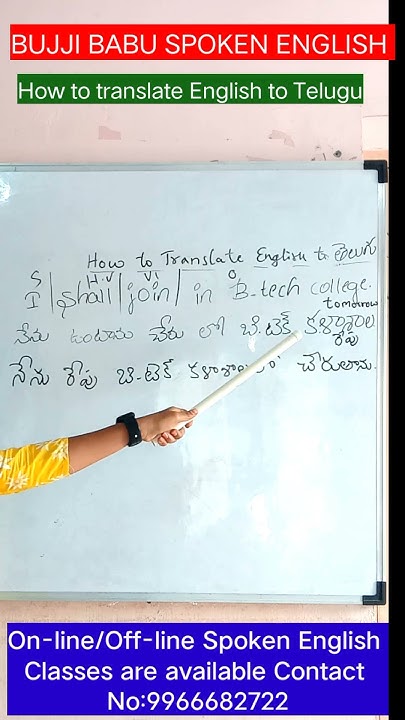 BUJJI BABU SPOKEN ENGLISH
How to translate English to Telugu
How to Translate English to తెలుగు
S H.V V1 O
I / shall / join / in B-tech college.
tomorrow
నేను ఉంటాను చేరు లో బి.టెక్ కళాశాల
రేపు
నేను రేపు బి.టెక్ కళాశాలలో చేరుతాను.
On-line/Off-line Spoken English
Classes are available Contact
No:9966682722